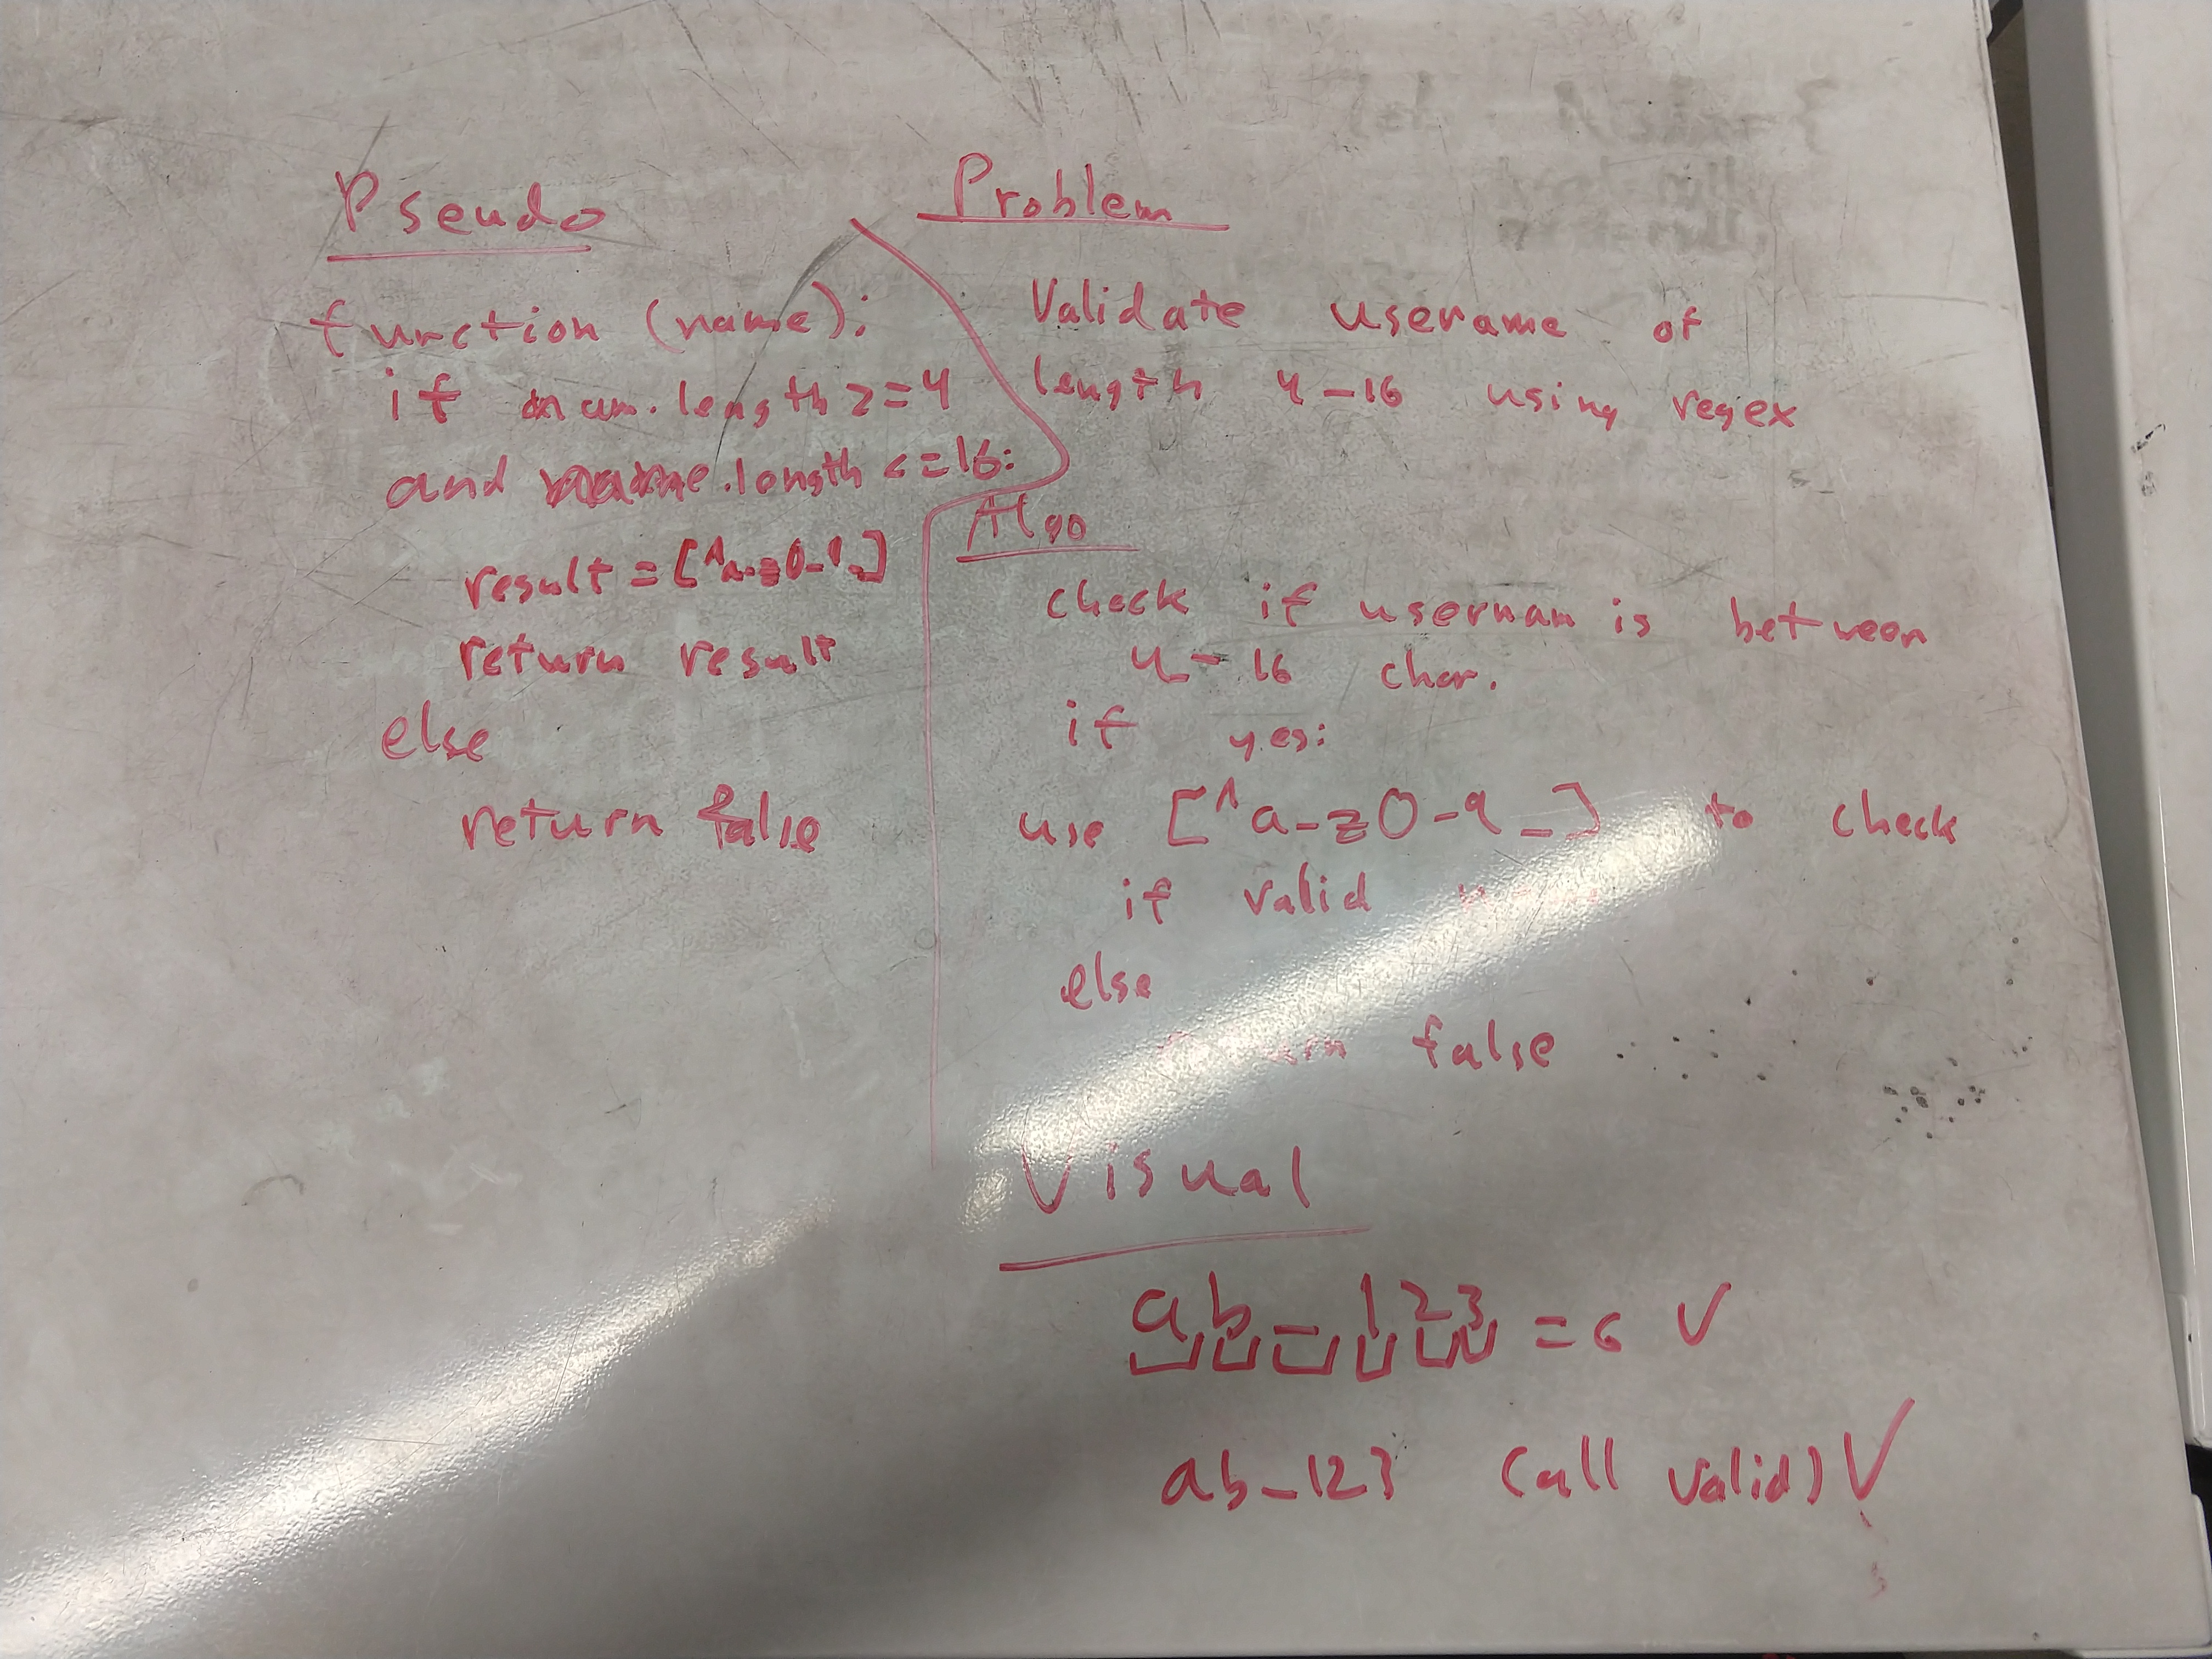 Pseudo
function (name):
if nam.length >=4
and name.length <=16:
result = [^a-z0-9_]
return result
else
return false
Problem
Validate userame of
length 4-16 using regex
Algo
check if usernam is between
4-16 char.
if yes:
use [^a-z0-9_] to check
if valid
else
return false
Visual
ab_123 = 6 ✓
ab_123 (all valid) ✓